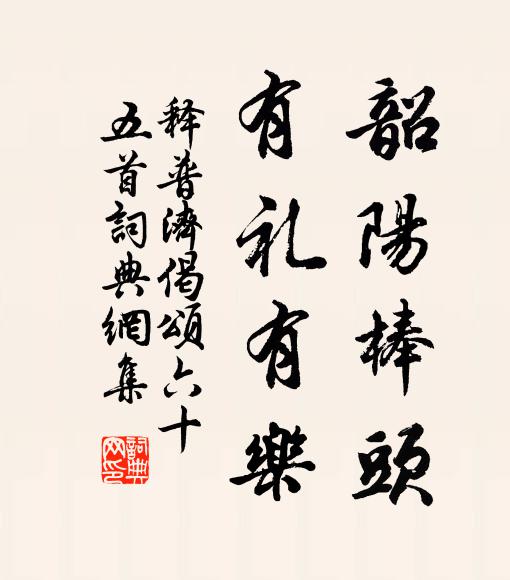 韶陽棒頭
有礼有樂
释普濟偈頌六十
五首詞典網集
詞典网印